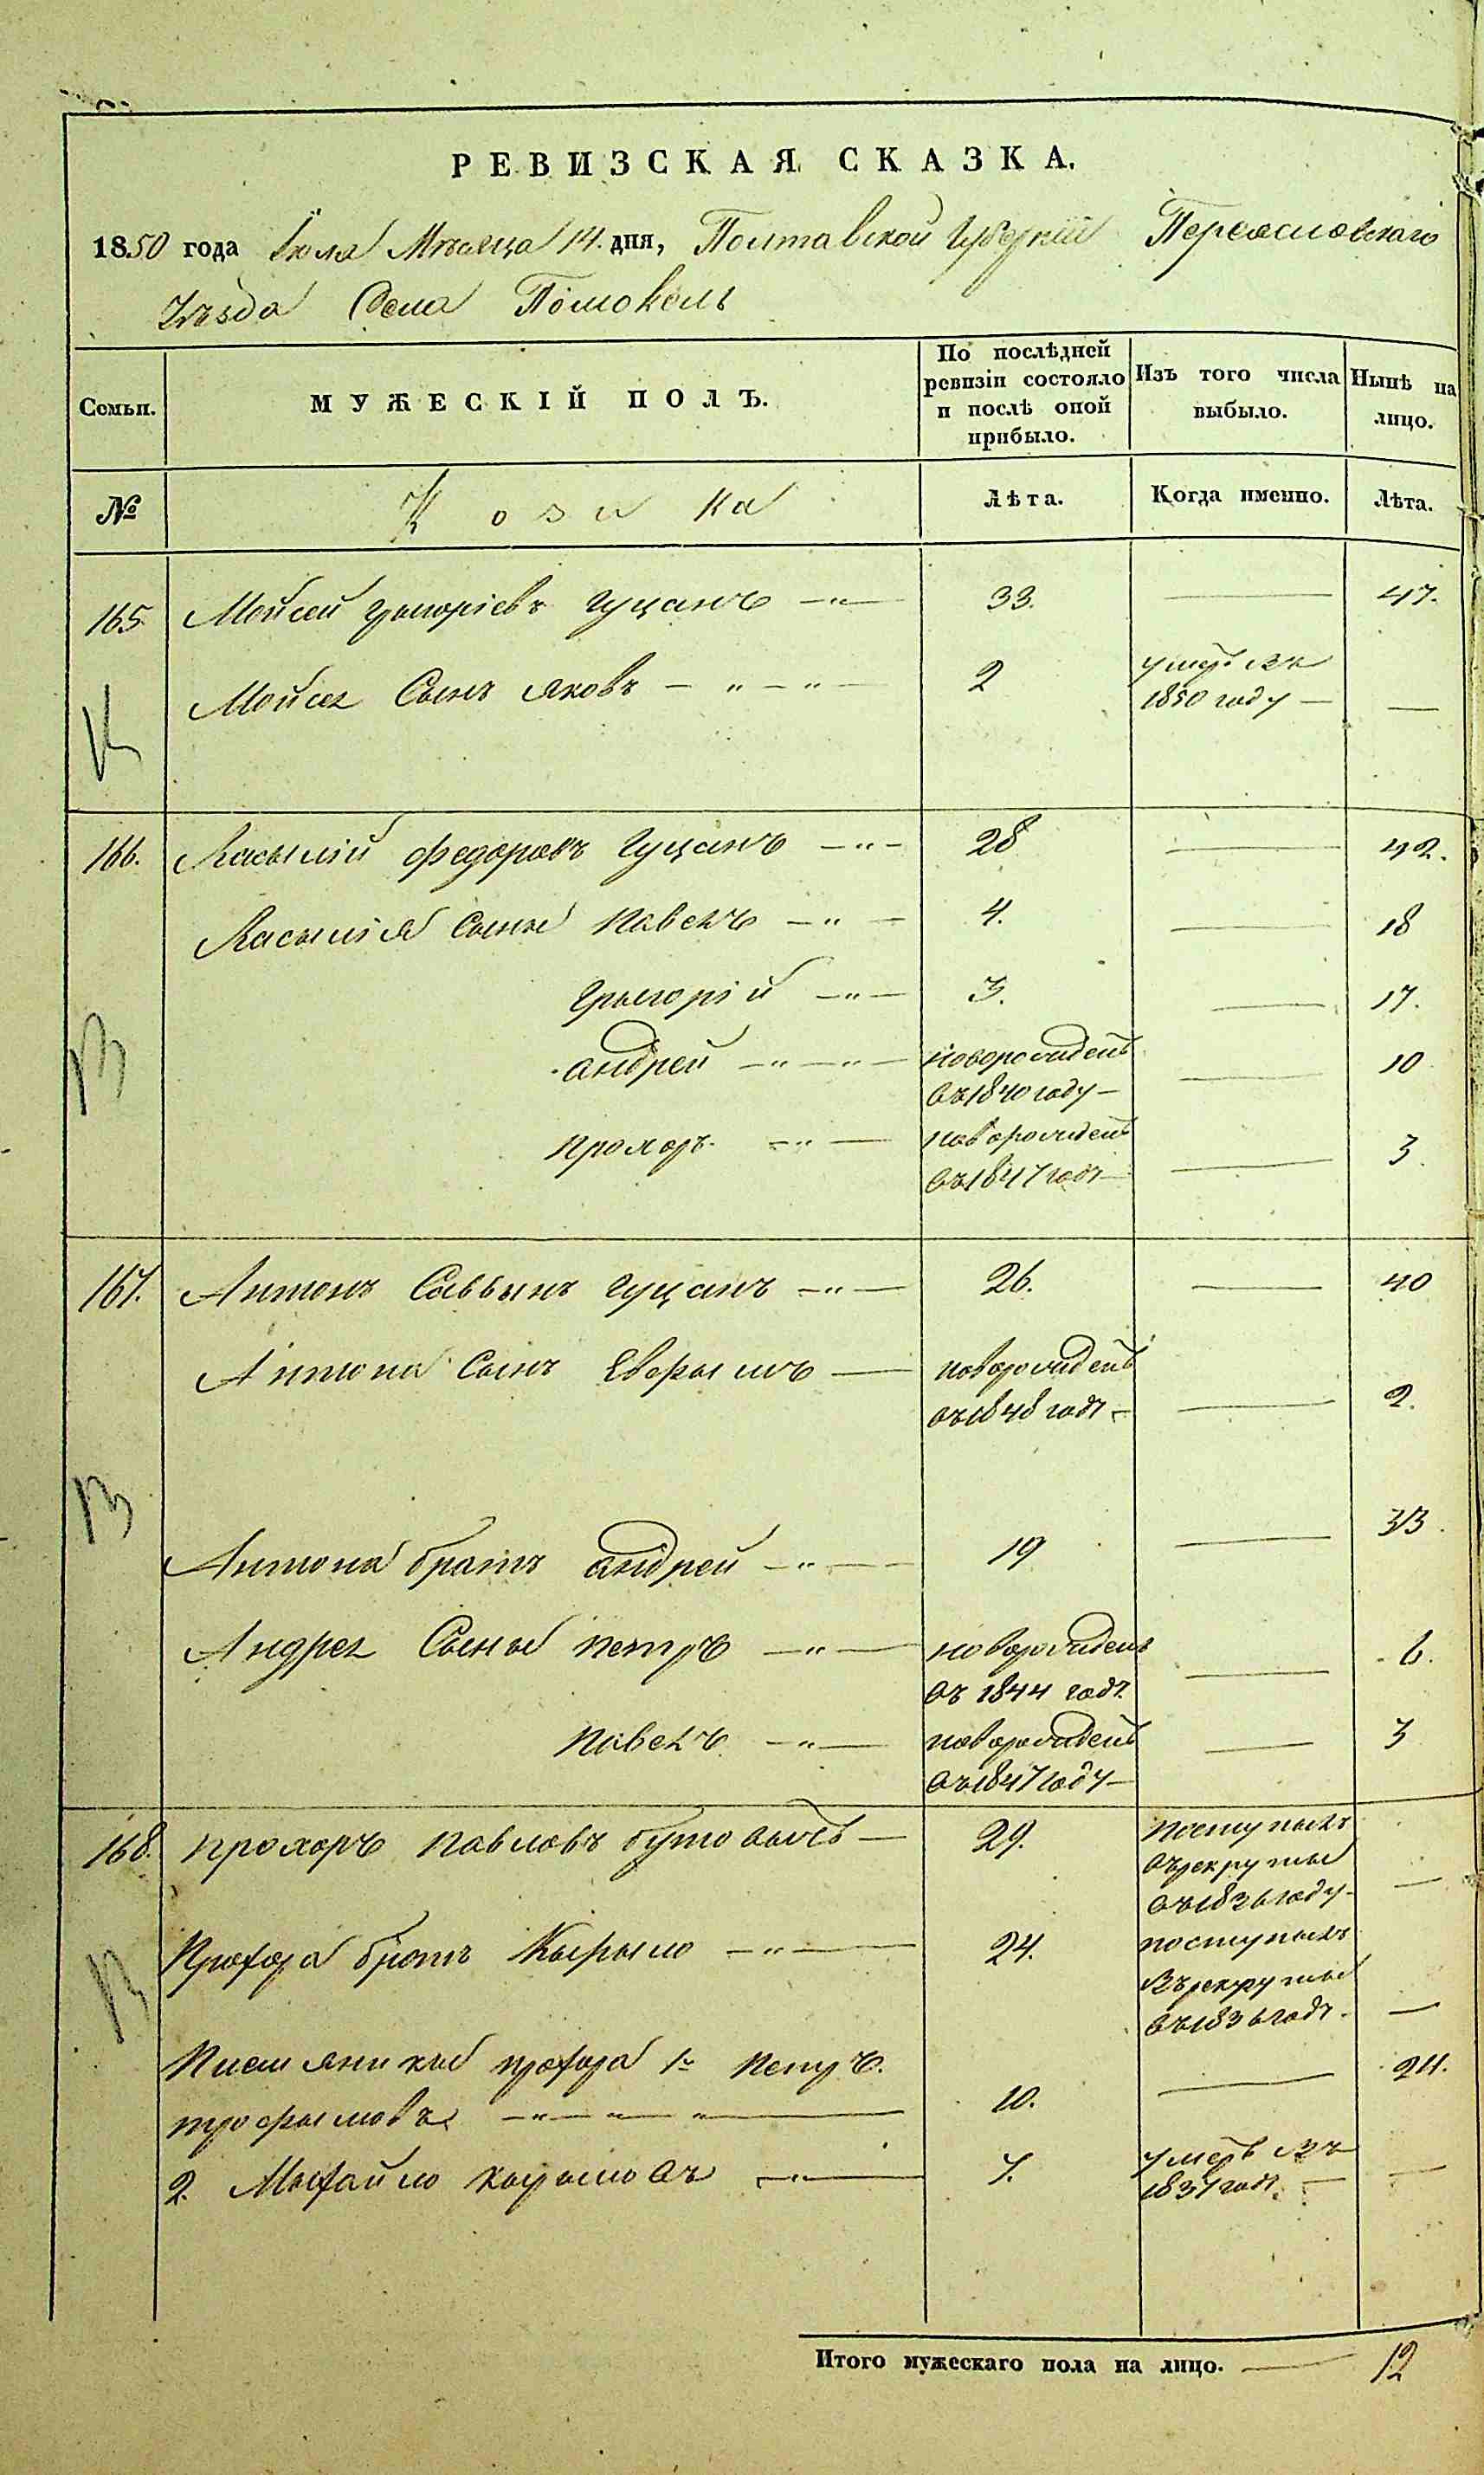 РЕВИЗСКАЯ СКАЗКА.
1850 года Іюля Мѣсяца 14. дня, Полтавской Губерніи Переасловскаго
Уѣзда Села Помокель
Семьи.
МУЖЕСКІЙ ПОЛЪ.
По послѣдней ревизіи состояло и послѣ оной прибыло.
Изъ того числа выбыло.
Нынѣ на лицо.
№
Козака
Лѣта.
Когда именно.
Лѣта.
165 Мойсей Грыгоріевъ Гуцанъ 33. — 47.
Мойсея Сынъ Яковъ 2 умер. въ
1850 году — —
166. Василій Федоровъ Гуцанъ 28 — 42.
Василія Сыны Павелъ 4. — 18
Грыгорій 3. — 17.
Андрей новорожденъ — 10
въ 1840 году —
Прохоръ новорожденъ — 3.
въ 1847 году —
167. Антонъ Саввынъ Гуцанъ 26. — 40
Антона Сынъ новорожденъ
въ 1848 году — — 2.
Антона братъ Андрей 19 — 33.
Андрея Сыны Петръ новорожденъ — 6.
въ 1844 году
Павелъ новорожденъ — 3
въ 1847 году —
168. Прохоръ Павловъ Бутовычъ — 29. поступылъ
въ рекруты
въ 1836 году — —
Прохора братъ Кырыло 24. поступылъ
въ рекруты
въ 1836 году. —
Племяныкы Прохора 1й Петръ — 24.
Трофымовъ 10.
2. Мыхайло Кырыловъ 7. умеръ въ —
1837 году. —
Итого мужескаго пола на лицо. — 12